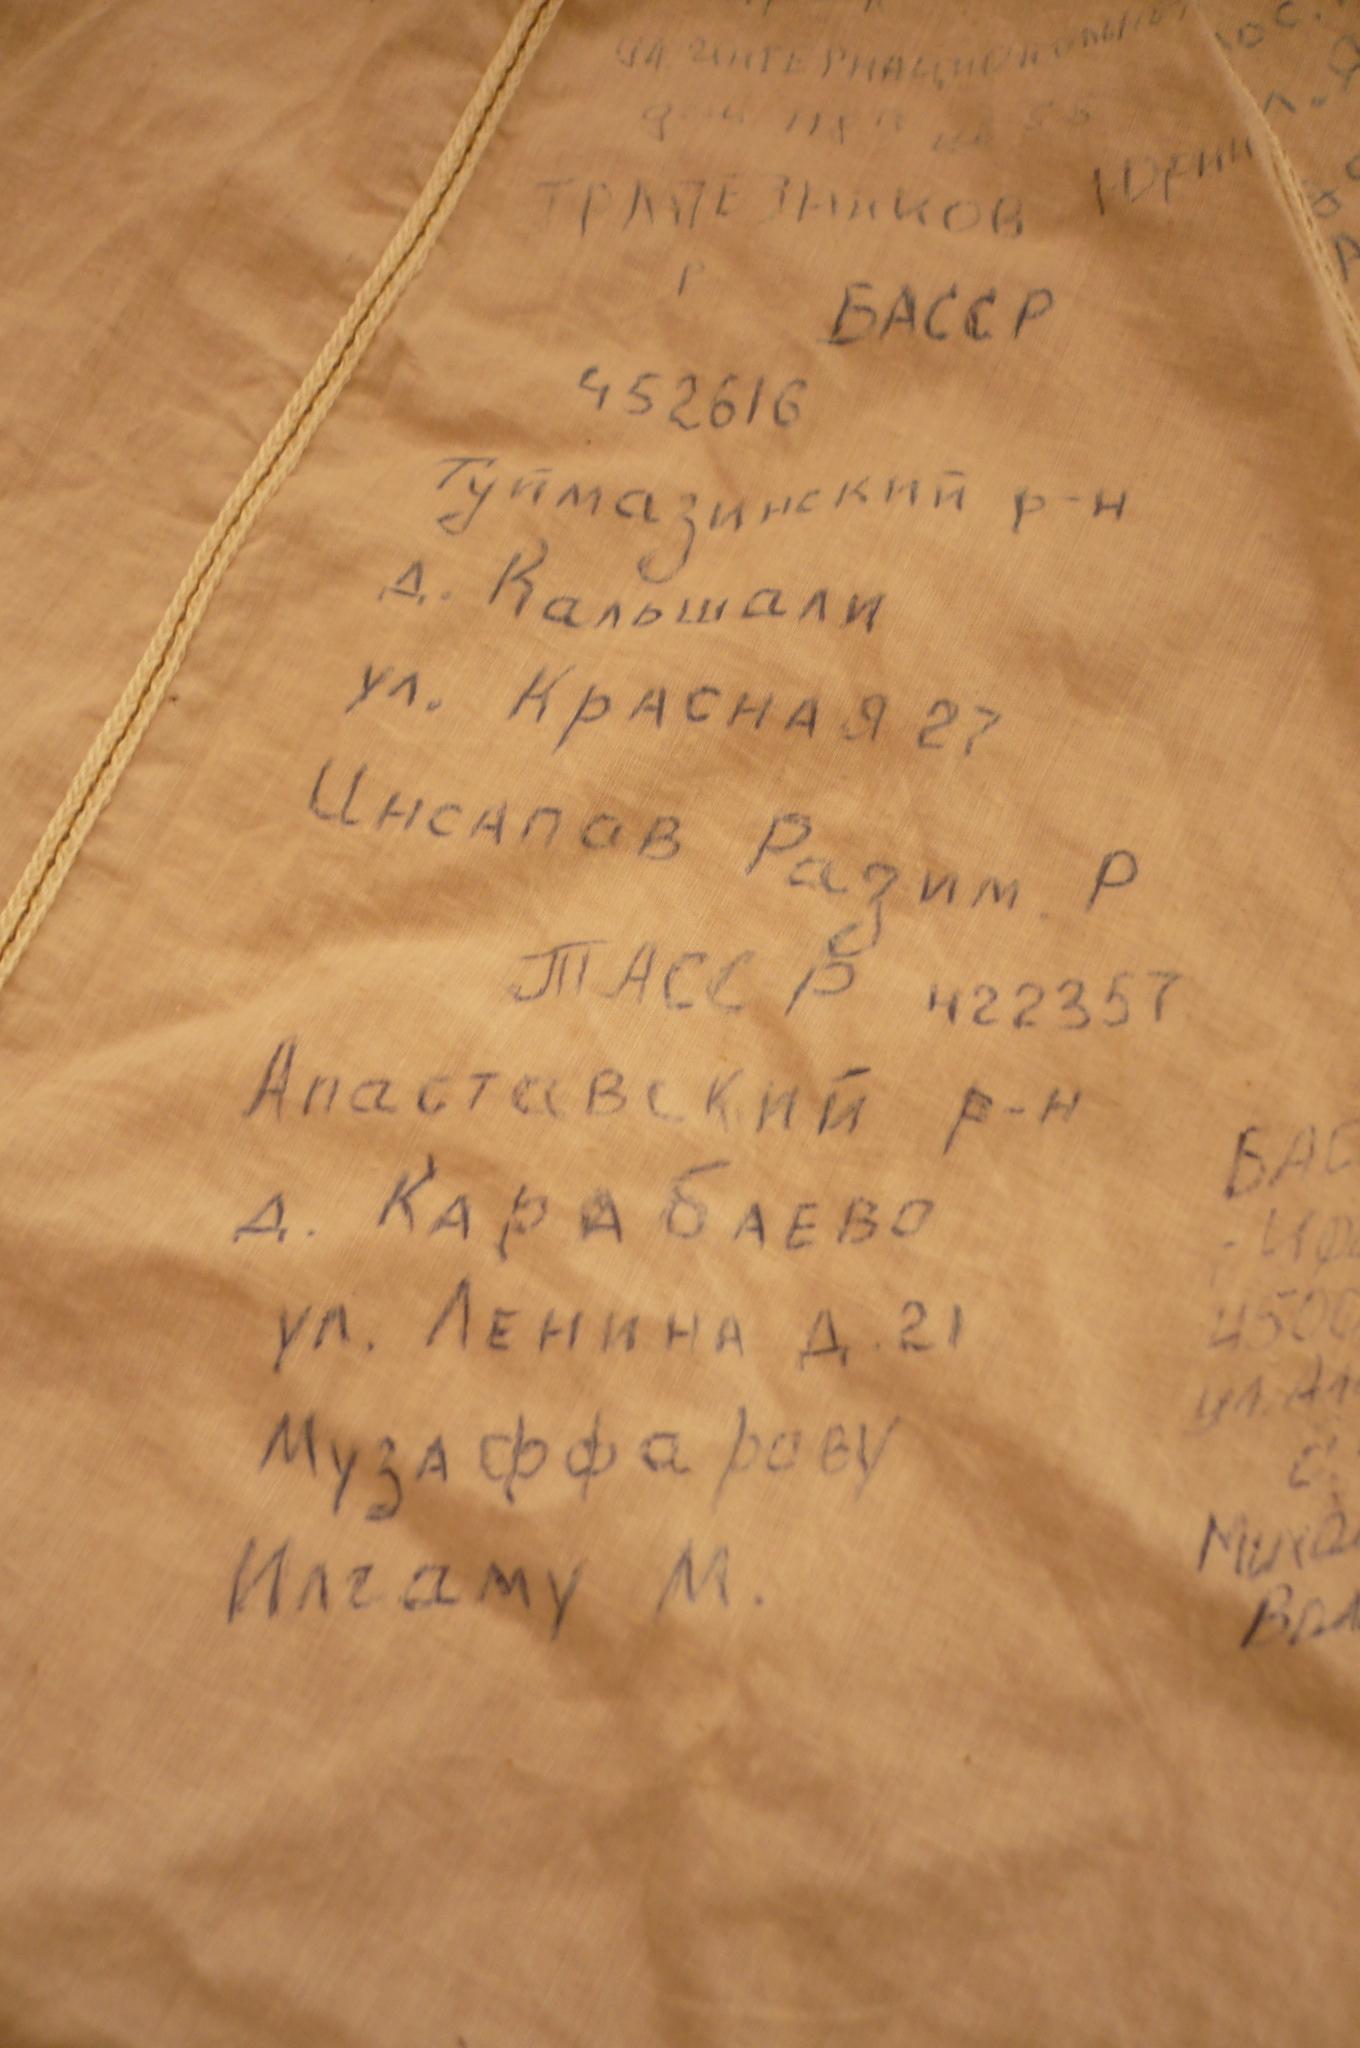 ул. ИНТЕРНАЦИОНАЛЬНАЯ
ТРАПЕЗНИКОВ ЮРИЙ
БАССР
452616
Туймазинский р-н
д. Кальшали
ул. КРАСНАЯ 27
Инсапов Разим. Р
ТАССР 422357
Апаставский р-н
д. КАРАБАЕВО
ул. ЛЕНИНА Д. 21
Музаффарову
Илгаму М.
БАС
4500
ул. Ал
Миха
Вла